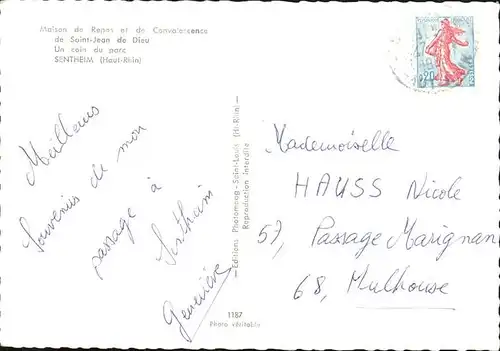 Maison de Repos et de Convalescence
de Saint-Jean de Dieu
Un coin du parc
SENTHEIM (Haut-Rhin)
Meilleurs
souvenirs de mon
passage à
Sentheim
Geneviève
Editions Photomag-Saint-Louis (Ht-Rhin)
Reproduction interdite
1187
Photo véritable
0,20
Mademoiselle
HAUSS Nicole
57, Passage Marignan
68, Mulhouse